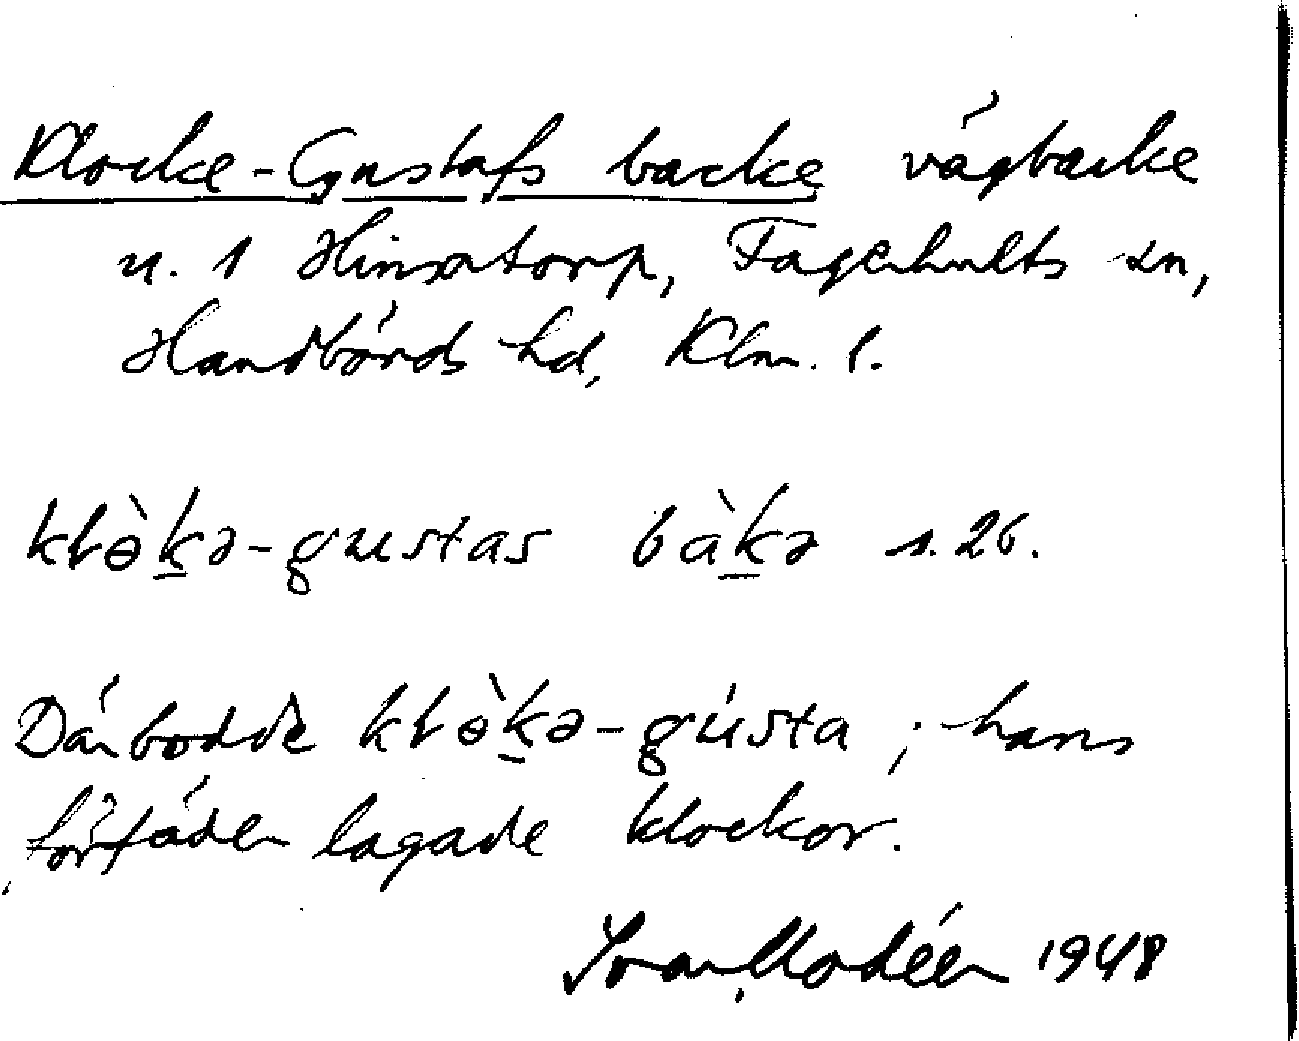 Klocke-Gustafs backe vägbacke
u. 1 Hinsatorp, Fagerhults sn,
Handbörds hd, Klm. l.
klɵ̀ḵə-gustas bàḵə s. 26.
Där bodde klɵ̀ḵə-gústa; hans
förfäder lagade klockor.
Ivar Modéer 1948